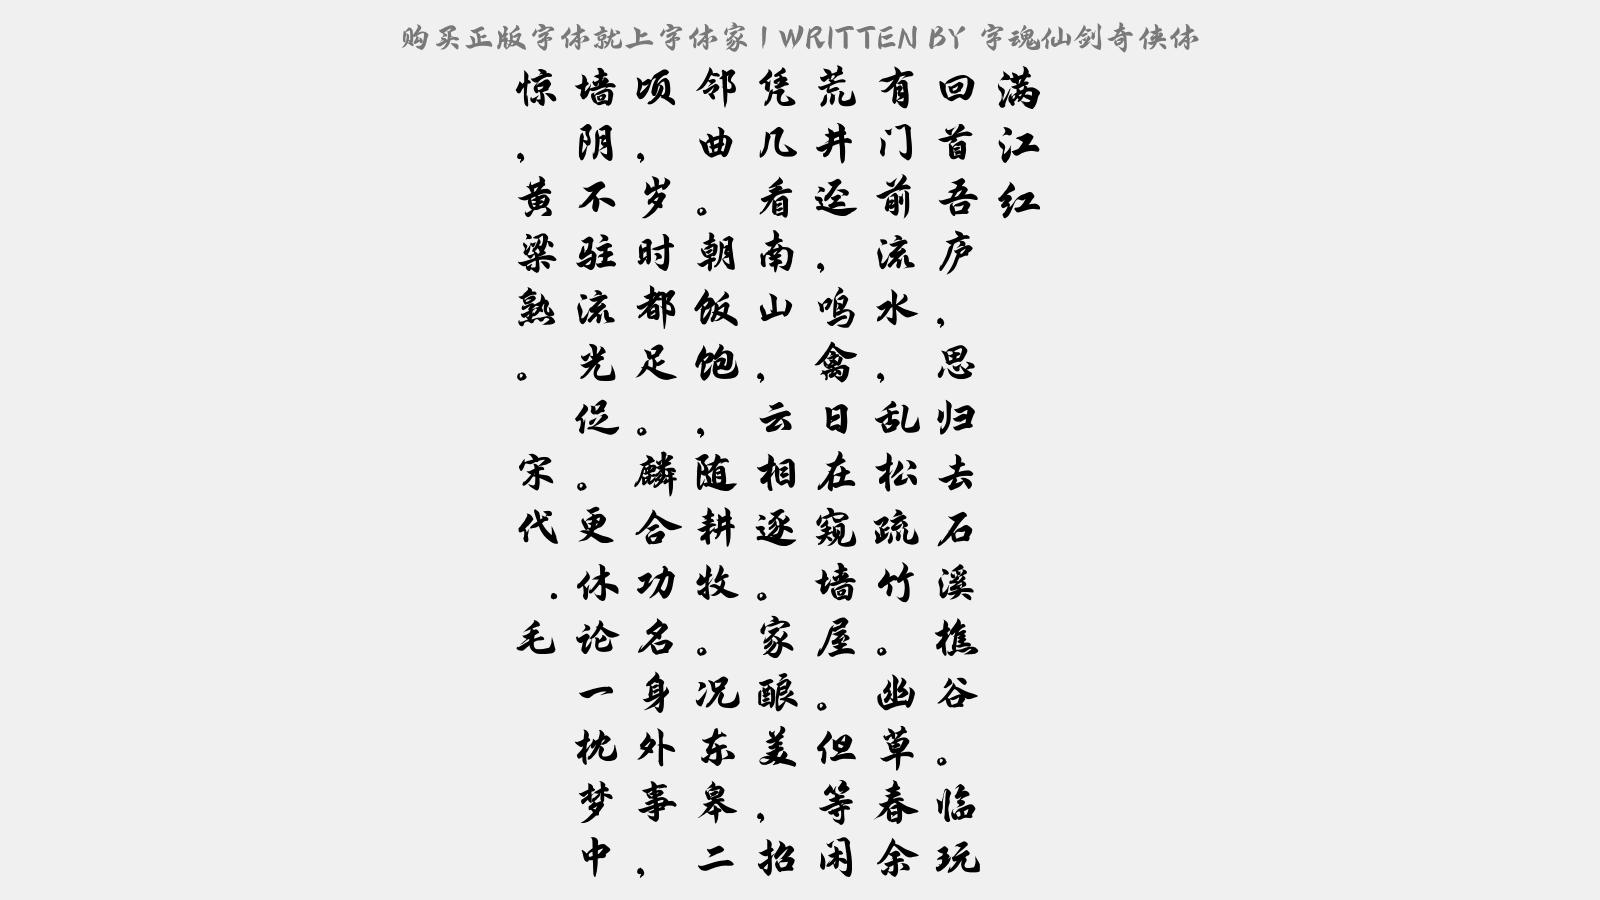 购买正版字体就上字体家 | WRITTEN BY 字魂仙剑奇侠体
满江红
回首吾庐，思归去石溪樵谷。临玩
有门前流水，乱松疏竹。幽草春余
荒井迳，鸣禽日在窥墙屋。但等闲
凭几看南山，云相逐。家酿美，招
邻曲。朝饭饱，随耕牧。况东皋二
顷，岁时都足。麟合功名身外事，
墙阴不驻流光促。更休论一枕梦中
惊，黄梁熟。 宋代 . 毛